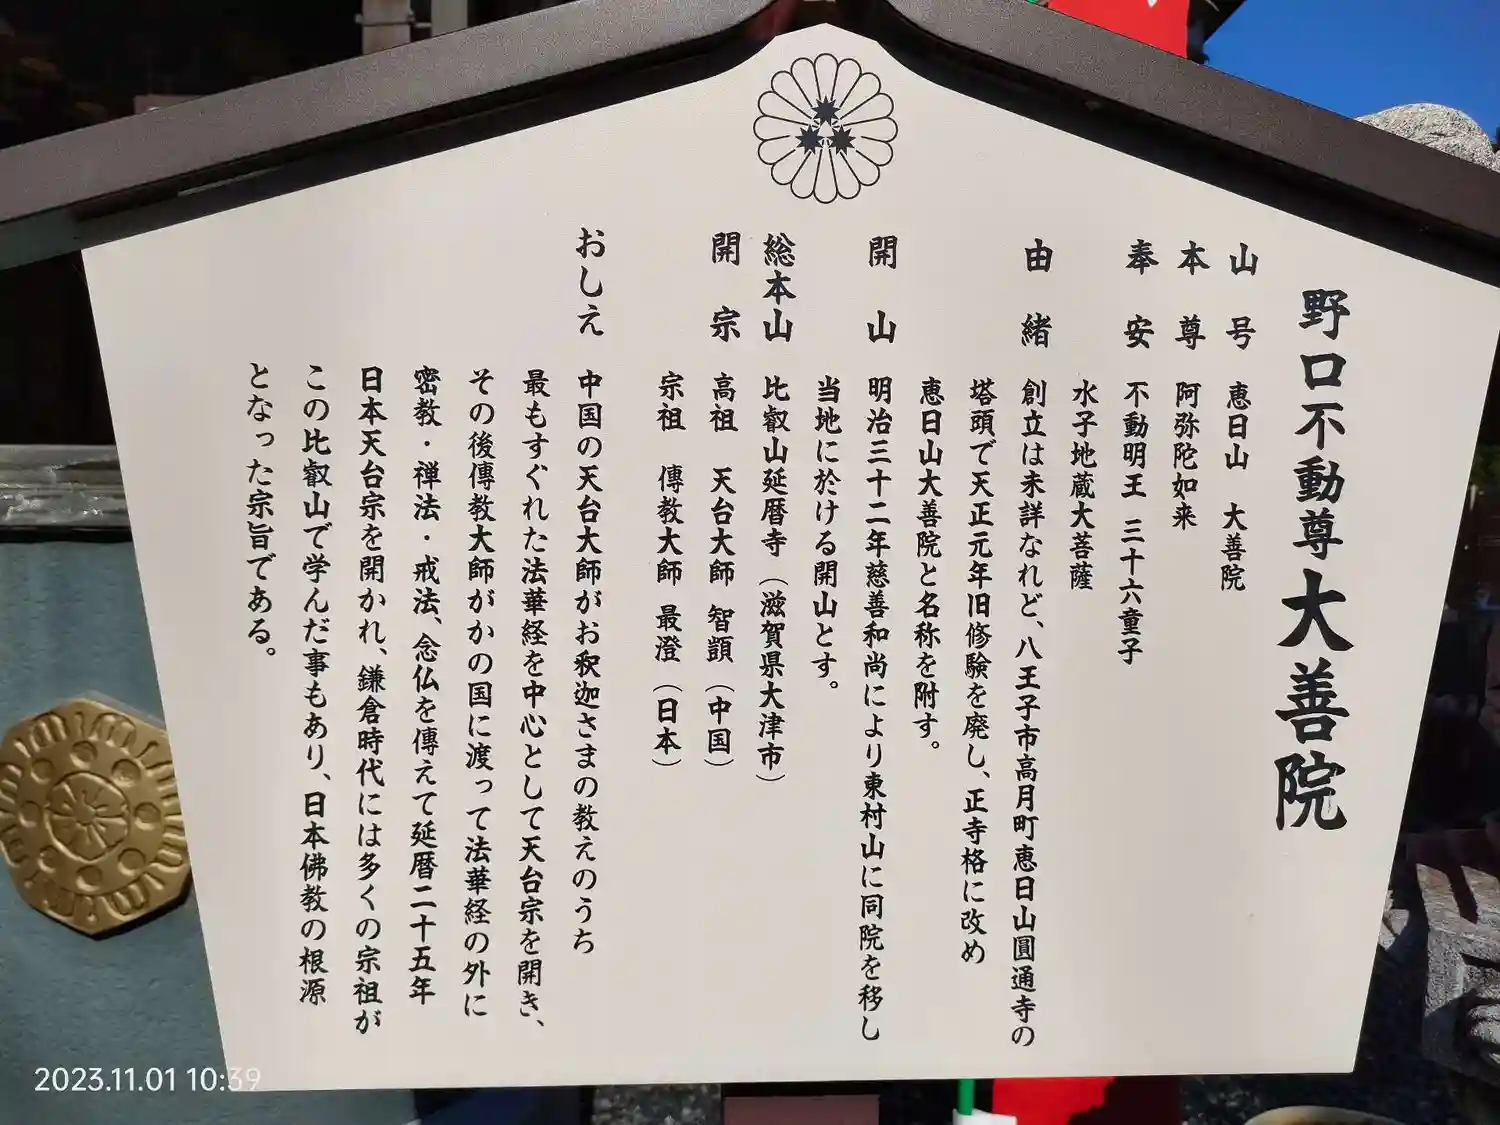 野口不動尊大善院
山号 恵日山 大善院
本尊 阿弥陀如来
奉安 不動明王 三十六童子
水子地蔵大菩薩
由緒 創立は未詳なれど、八王子市高月町恵日山圓通寺の
塔頭で天正元年旧修験を廃し、正寺格に改め
恵日山大善院と名称を附す。
開山 明治三十二年慈善和尚により東村山に同院を移し
当地に於ける開山とす。
総本山 比叡山延暦寺（滋賀県大津市）
開宗 高祖 天台大師 智顗（中国）
宗祖 傳教大師 最澄（日本）
おしえ 中国の天台大師がお釈迦さまの教えのうち
最もすぐれた法華経を中心として天台宗を開き、
その後傳教大師がかの国に渡って法華経の外に
密教・禅法・戒法、念仏を傳えて延暦二十五年
日本天台宗を開かれ、鎌倉時代には多くの宗祖が
この比叡山で学んだ事もあり、日本佛教の根源
となった宗旨である。
2023.11.01 10:39